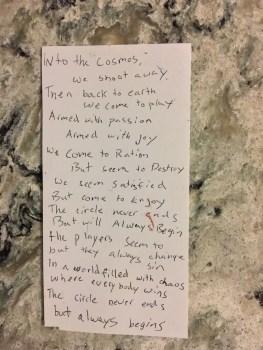 INto the Cosmos,
We shoot away.
Then back to earth
We come to play
Armed with passion
Armed with joy
We Come to Ration
But seem to Destroy
We seem satisfied
But come to Enjoy
The circle never Ends
But will Always Begin
the players seem to
but they always change
sin
In a world filled with chaos
where everybody wins
The circle never ends
but always begins